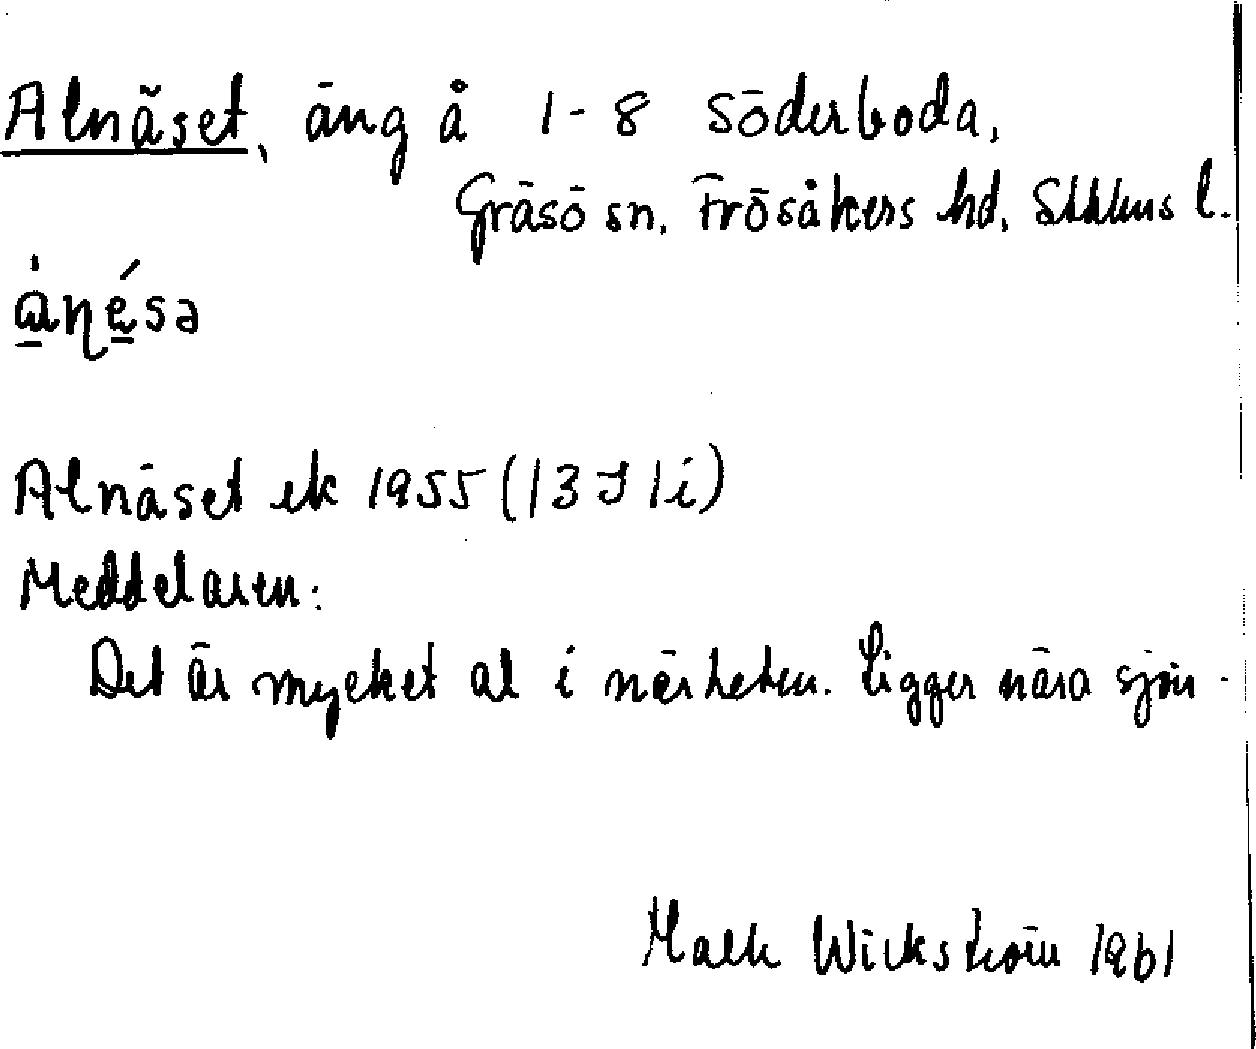 Alnäset, äng å 1-8 Söderboda,
Gräsö sn. Frösåkers hd. Sthlms l.
Alnäset ek 1955 (13 I 1i)
Meddelaren:
Det är mycket al i närheten. Ligger nära sjön.
Wickström 1961